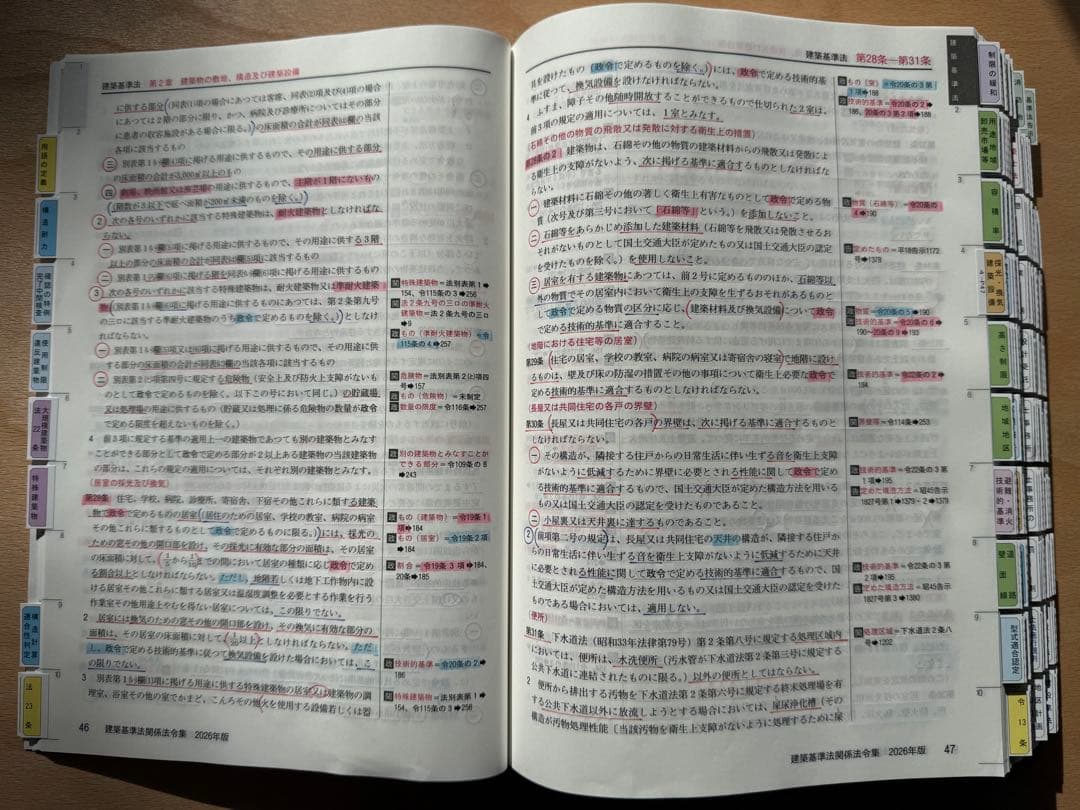 建築基準法 第2章 建築物の敷地、構造及び建築設備
に供する部分(同表(1)項の場合にあつては客席、同表(2)項及び(4)項の場合
にあつては2階の部分に限り、かつ、病院及び診療所についてはその部分
に患者の収容施設がある場合に限る。)の床面積の合計が同表(は)欄の当該
各項に該当するもの
三 別表第1(い)欄(4)項に掲げる用途に供するもので、その用途に供する部分
の床面積の合計が3,000㎡以上のもの
四 劇場、映画館又は演芸場の用途に供するもので、主階が1階にないもの
(階数が3以下で延べ面積が200㎡未満のものを除く。)
2 次の各号のいずれかに該当する特殊建築物は、耐火建築物としなければな
らない。
一 別表第1(い)欄(5)項に掲げる用途に供するもので、その用途に供する3階
以上の部分の床面積の合計が同表(は)欄(5)項に該当するもの
二 別表第1(ろ)欄(6)項に掲げる階を同表(い)欄(6)項に掲げる用途に供するもの
3 次の各号のいずれかに該当する特殊建築物は、耐火建築物又は準耐火建築
物(別表第1(い)欄(6)項に掲げる用途に供するものにあつては、第2条第九号
の三ロに該当する準耐火建築物のうち政令で定めるものを除く。)としなけれ
ばならない。
一 別表第1(い)欄(5)項又は(6)項に掲げる用途に供するもので、その用途に供
する部分の床面積の合計が同表(に)欄の当該各項に該当するもの
二 別表第2(と)項第四号に規定する危険物(安全上及び防火上支障がないも
のとして政令で定めるものを除く。以下この号において同じ。)の貯蔵場
又は処理場の用途に供するもの(貯蔵又は処理に係る危険物の数量が政令
で定める限度を超えないものを除く。)
4 前3項に規定する基準の適用上一の建築物であつても別の建築物とみなす
ことができる部分として政令で定める部分が2以上ある建築物の当該建築物
の部分は、これらの規定の適用については、それぞれ別の建築物とみなす。
(居室の採光及び換気)
第28条 住宅、学校、病院、診療所、寄宿舎、下宿その他これらに類する建築
物で政令で定めるものの居室(居住のための居室、学校の教室、病院の病室
その他これらに類するものとして政令で定めるものに限る。)には、採光の
ための窓その他の開口部を設け、その採光に有効な部分の面積は、その居室
の床面積に対して、1/5から1/10までの間において居室の種類に応じ政令で定め
る割合以上としなければならない。ただし、地階若しくは地下工作物内に設
ける居室その他これらに類する居室又は温湿度調整を必要とする作業を行う
作業室その他用途上やむを得ない居室については、この限りでない。
2 居室には換気のための窓その他の開口部を設け、その換気に有効な部分の
面積は、その居室の床面積に対して、1/20以上としなければならない。ただ
し、政令で定める技術的基準に従つて換気設備を設けた場合においては、こ
の限りでない。
3 別表第1(い)欄(1)項に掲げる用途に供する特殊建築物の居室又は建築物の調
理室、浴室その他の室でかまど、こんろその他火を使用する設備若しくは器
特殊建築物=法別表第1➡
154、令115条の3➡256
法2条九号の三ロの準耐火
建築物=法2条九号の三ロ
➡9
もの(準耐火建築物)=令
115条の4➡257
危険物=法別表第2(と)項四
号➡157
もの(危険物)=未制定
数量の限度=令116条➡257
別の建築物とみなすことが
できる部分=令109条の8
➡243
もの(建築物)=令19条1
項➡184
もの(居室)=令19条2項
➡184
割合=令19条3項➡184、
20条➡185
技術的基準=令20条の2➡
186
特殊建築物=法別表第1➡
154、令115条の3➡256
46 建築基準法関係法令集 2026年版
建築基準法 第28条―第31条
具を設けたもの(政令で定めるものを除く。)には、政令で定める技術的基
準に従つて、換気設備を設けなければならない。
4 ふすま、障子その他随時開放することができるもので仕切られた2室は、
前3項の規定の適用については、1室とみなす。
(石綿その他の物質の飛散又は発散に対する衛生上の措置)
第28条の2 建築物は、石綿その他の物質の建築材料からの飛散又は発散によ
る衛生上の支障がないよう、次に掲げる基準に適合するものとしなければな
らない。
一 建築材料に石綿その他の著しく衛生上有害なものとして政令で定める物
質(次号及び第三号において「石綿等」という。)を添加しないこと。
二 石綿等をあらかじめ添加した建築材料(石綿等を飛散又は発散させるお
それがないものとして国土交通大臣が定めたもの又は国土交通大臣の認定
を受けたものを除く。)を使用しないこと。
三 居室を有する建築物にあつては、前2号に定めるもののほか、石綿等以
外の物質でその居室内において衛生上の支障を生ずるおそれがあるものとし
て政令で定める物質の区分に応じ、建築材料及び換気設備について政令
で定める技術的基準に適合すること。
(地階における住宅等の居室)
第29条 住宅の居室、学校の教室、病院の病室又は寄宿舎の寝室で地階に設け
るものは、壁及び床の防湿の措置その他の事項について衛生上必要な政令で
定める技術的基準に適合するものとしなければならない。
(長屋又は共同住宅の各戸の界壁)
第30条 長屋又は共同住宅の各戸の界壁は、次に掲げる基準に適合するものと
しなければならない。
一 その構造が、隣接する住戸からの日常生活に伴い生ずる音を衛生上支障
がないように低減するために界壁に必要とされる性能に関して政令で定め
る技術的基準に適合するもので、国土交通大臣が定めた構造方法を用いるも
の又は国土交通大臣の認定を受けたものであること。
二 小屋裏又は天井裏に達するものであること。
2 前項第二号の規定は、長屋又は共同住宅の天井の構造が、隣接する住戸か
らの日常生活に伴い生ずる音を衛生上支障がないように低減するために天井
に必要とされる性能に関して政令で定める技術的基準に適合するもので、国
土交通大臣が定めた構造方法を用いるもの又は国土交通大臣の認定を受けた
ものである場合においては、適用しない。
(便所)
第31条 下水道法(昭和33年法律第79号)第2条第八号に規定する処理区域内
においては、便所は、水洗便所(汚水管が下水道法第2条第三号に規定する
公共下水道に連結されたものに限る。)以外の便所としてはならない。
2 便所から排出する汚物を下水道法第2条第六号に規定する終末処理場を有
する公共下水道以外に放流しようとする場合においては、屎尿浄化槽(その
構造が汚物処理性能〔当該汚物を衛生上支障がないように処理するために屎
もの(室)=令20条の3第
1項➡188
技術的基準=令20条の2➡
186、20条の3第2項➡188
物質(石綿等)=令20条の
4➡190
定めたもの=平18告示1172
号➡1379
物質=令20条の5➡190
技術的基準=令20条の6➡
190~20条の9➡193
技術的基準=令22条の2➡
184
界壁等=令114条➡253
技術的基準=令22条の3第
1項➡195
定めた構造方法=昭45告示
1827号第1・第2➡1379
技術的基準=令22条の3第
2項➡195
定めた構造方法=昭45告示
1827号第3➡1380
処理区域=下水道法2条八
号➡1202
建築基準法関係法令集 2026年版 47
用語の定義
構造耐力
確認の特例
完了中間検査
使用制限
違反建築物
大規模建築物
法22条
特殊建築物
構造計算
適合性判定
法23条
建築基準法
制限の緩和
用途地域
卸売市場等
容積率
採光・換気
建築設備
高さ制限
地域地区
避難・消火
技術的基準
壁面線
道路
型式適合認定
令13条